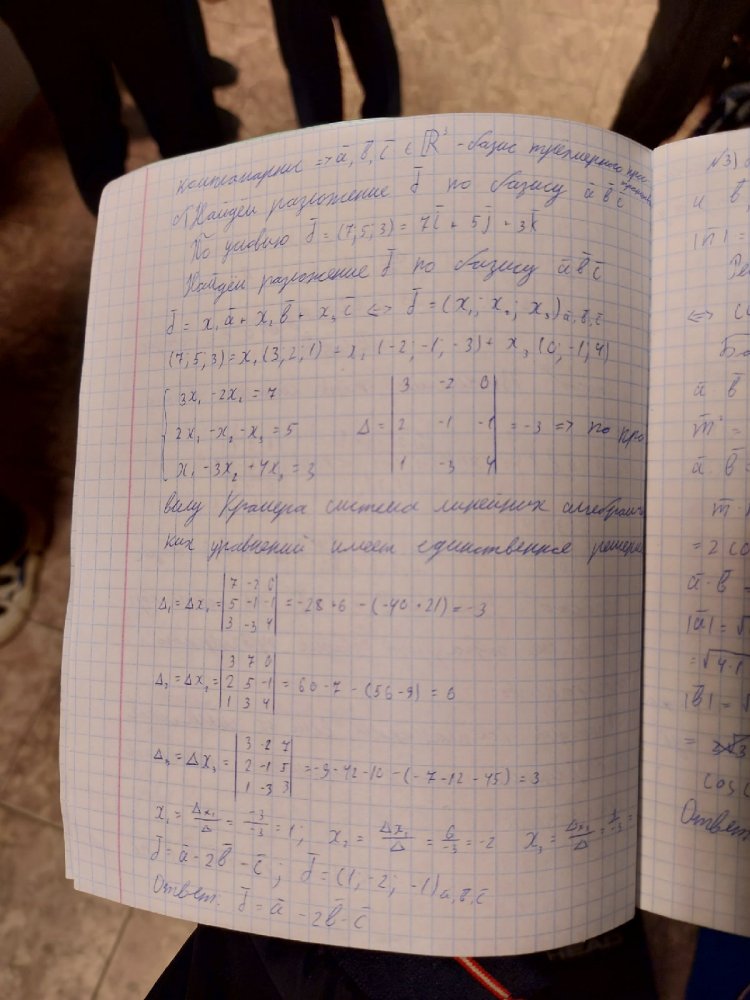 компланарны => ā, b̄, c̄ ∈ ℝ³ - базис трёхмерного прос-
транства
б) Найдём разложение d̄ по базису ā b̄ c̄
По условию d̄ = (7; 5; 3) = 7ī + 5j̄ + 3k̄
Найдём разложение d̄ по базису ā b̄ c̄
d̄ = x₁ā + x₂b̄ + x₃c̄ <=> d̄ = (x₁; x₂; x₃)ā, b̄, c̄
(7; 5; 3) = x₁(3; 2; 1) = x₁(-2; -1; -3) + x₃(0; -1; 4)
3x₁ - 2x₂ = 7
2x₁ - x₂ - x₃ = 5
x₁ - 3x₂ + 4x₃ = 3
Δ = |3 -2 0
2 -1 -1
1 -3 4| = -3 => по пра
вилу Крамера система линейных алгебраичес
ких уравнений имеет единственное решение
Δ₁ = Δx₁ = |7 -2 0
5 -1 -1
3 -3 4| = -28 + 6 - (-40 + 21) = -3
Δ₂ = Δx₂ = |3 7 0
2 5 -1
1 3 4| = 60 - 7 - (56 - 9) = 6
Δ₃ = Δx₃ = |3 -2 7
2 -1 5
1 -3 3| = -9 - 42 - 10 - (-7 - 12 - 45) = 3
x₁ = Δx₁/Δ = -3/-3 = 1; x₂ = Δx₂/Δ = 6/-3 = -2 x₃ = Δx₃/Δ = 3/-3 =
d̄ = ā - 2b̄ - c̄; d̄ = (1; -2; -1)ā, b̄, c̄
Ответ: d̄ = ā - 2b̄ - c̄
№3)
и b̄,
|m̄| =
Ре
<=>
ā · b̄
m̄² =
ā · b̄ =
m̄ ·
= 2 co
ā · b̄ =
|ā| = √
= √4·1
|b̄| =
=
cos(
Ответ
HEAD